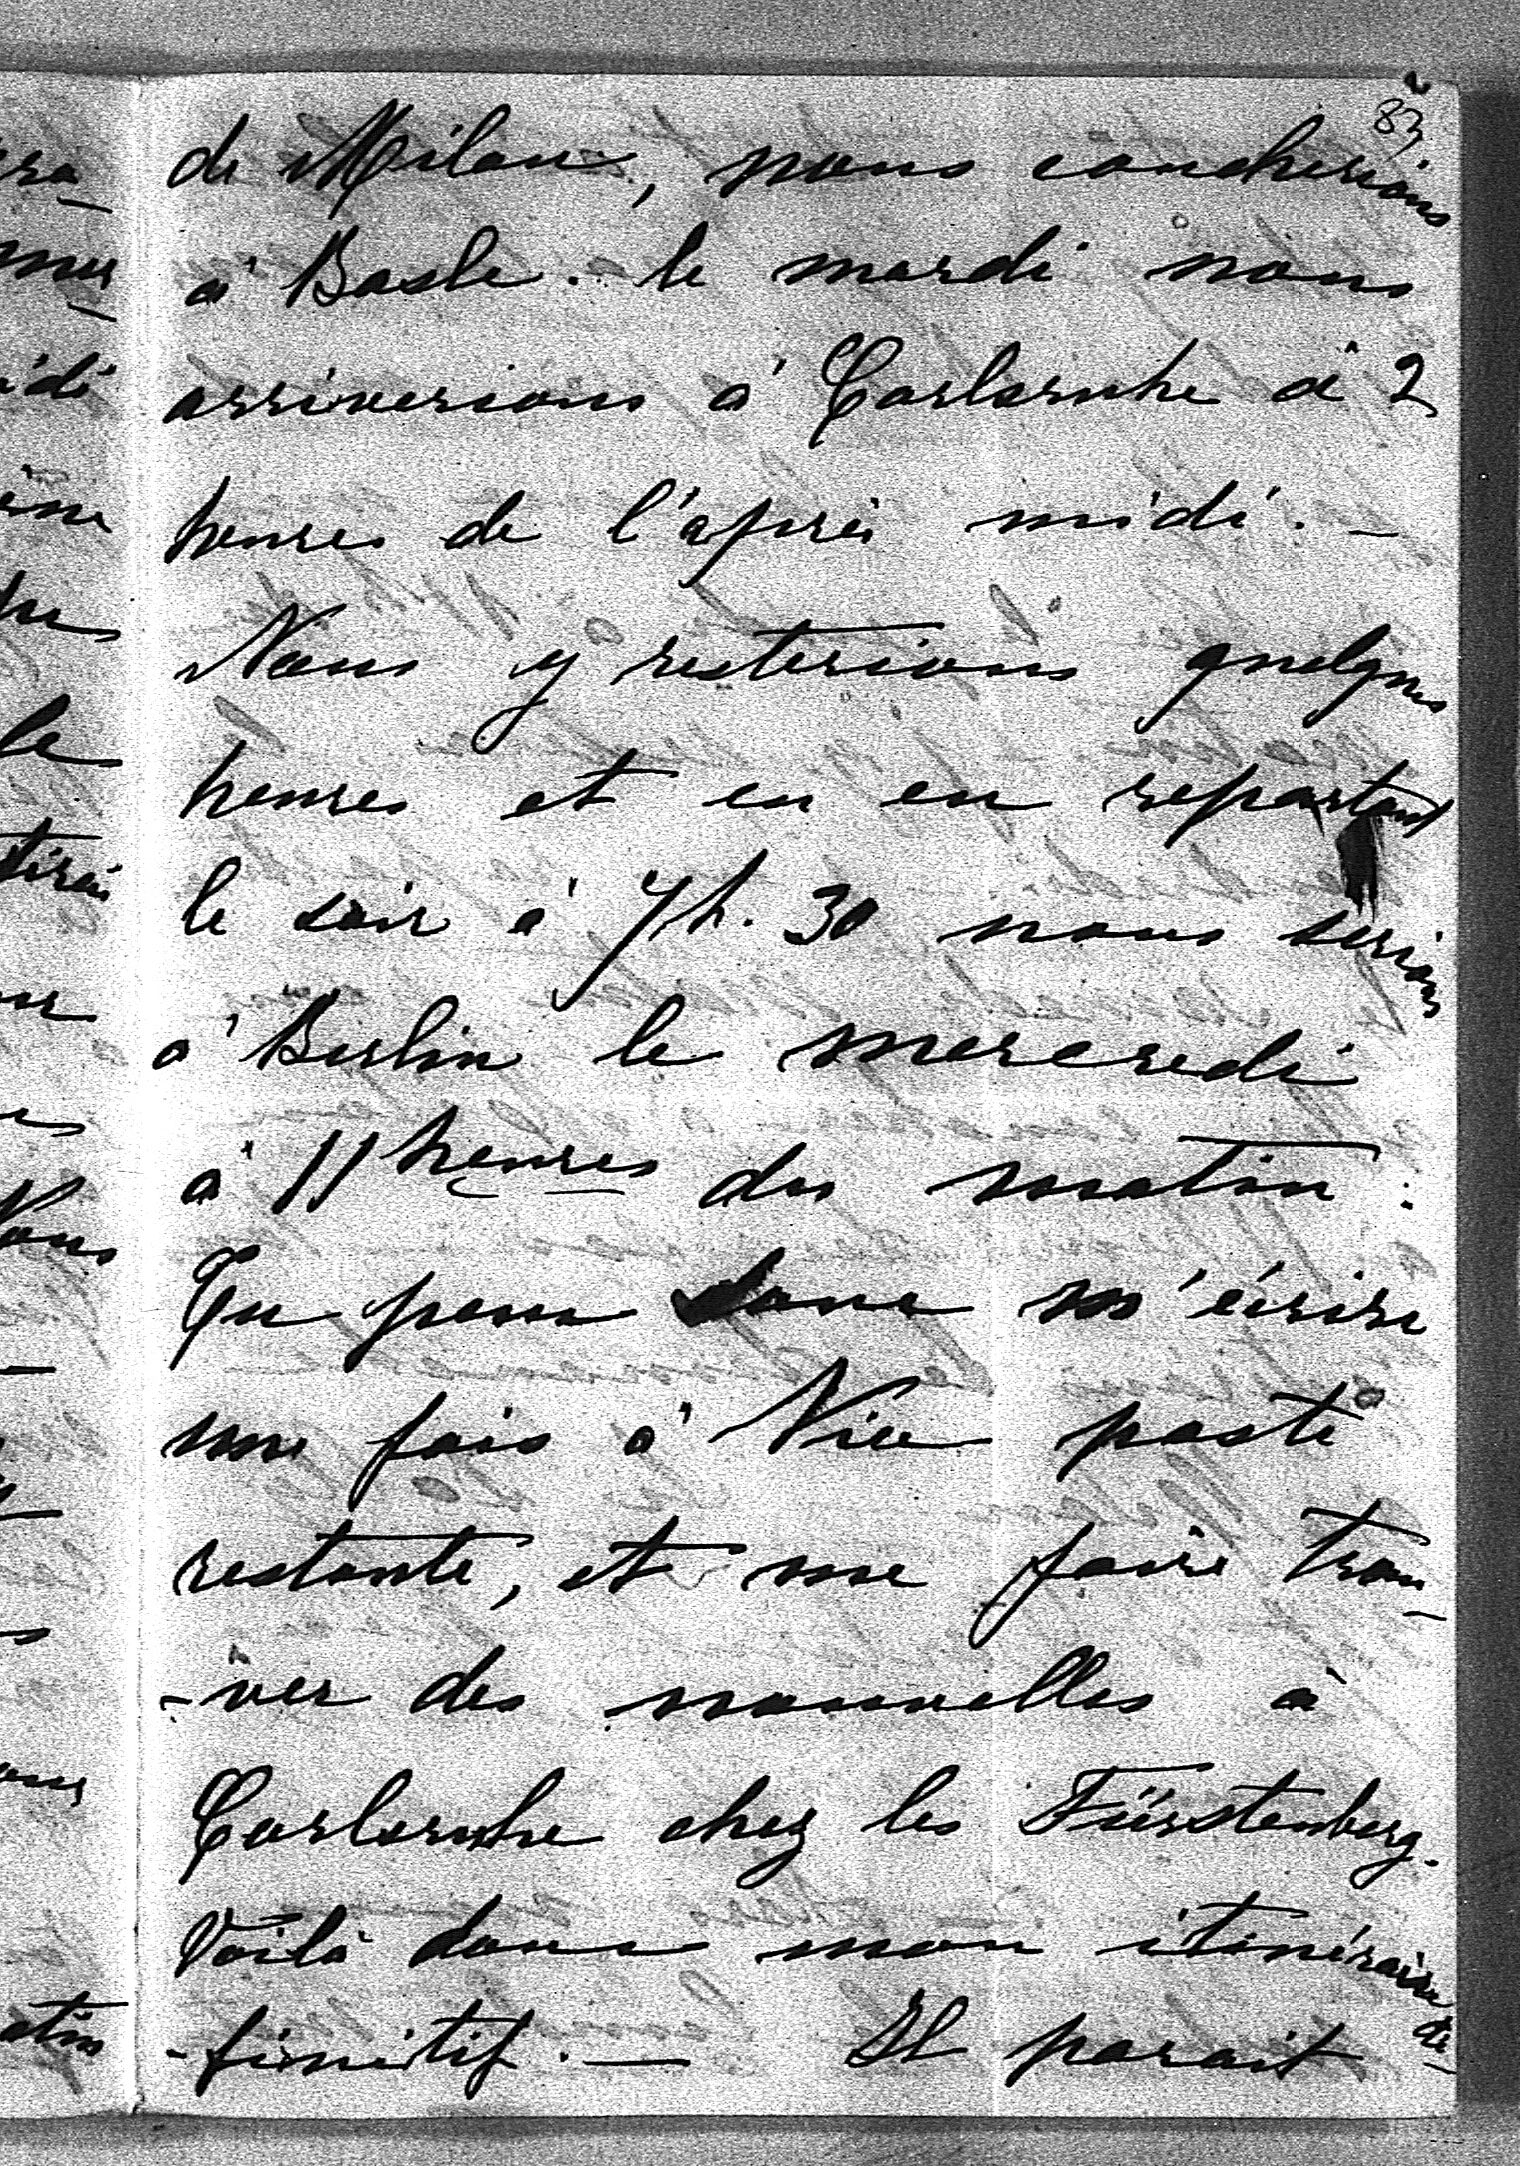 83
de Milan, nous coucherions
à Basle. le mardi nous
arriverions à Carlsruhe à 2
heures de l'après midi. —
Nous y resterions quelques
heures et en en repartant
le soir à 7h. 30 nous serions
à Berlin le mercredi
à 11 heures du matin.
Tu peux donc m'écrire
une fois à Nice poste
restante, et me faire trou-
-ver des nouvelles à
Carlsruhe chez les Fürstenberg.
Voilà donc mon itinéraire dé-
-finitif. — Il parait